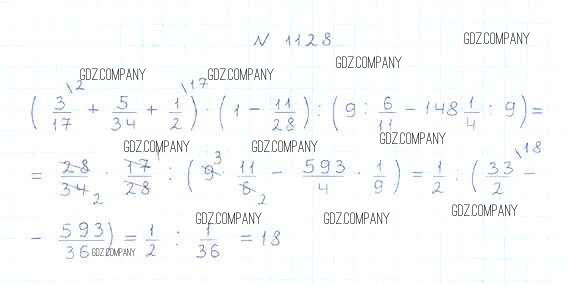 N 1128
GDZ.COMPANY
GDZ.COMPANY
GDZ.COMPANY GDZ.COMPANY
( 3/17 \2 + 5/34 + 1/2 \17 ) · ( 1 - 11/28 ) : ( 9 : 6/11 - 148 1/4 : 9 ) =
GDZ.COMPANY GDZ.COMPANY GDZ.COMPANY
= 28/34 2 · 17 1/28 : ( 9 3 · 11/6 2 - 593/4 · 1/9 ) = 1/2 : ( 33/2 \18 -
GDZ.COMPANY GDZ.COMPANY GDZ.COMPANY
- 593/36 ) = 1/2 : 1/36 = 18
GDZ.COMPANY